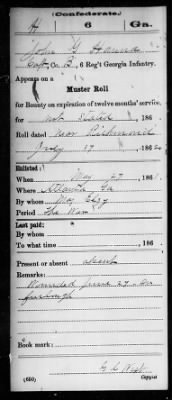 (Confederate.)
H 6 Ga.
John G Hanna
Co. B, 6 Reg't Georgia Infantry.
Appears on a
Muster Roll
for Bounty on expiration of twelve months' service,
for not stated, 186
Roll dated Near Richmond
July 17, 1862
Enlisted:
When May 27, 1861
Where Atlanta Ga
By whom Maj
Period The War
Last paid:
By whom
To what time , 186
Present or absent absent
Remarks:
Wounded June 27 - On
furlough
Book mark:
(650)
Copyist